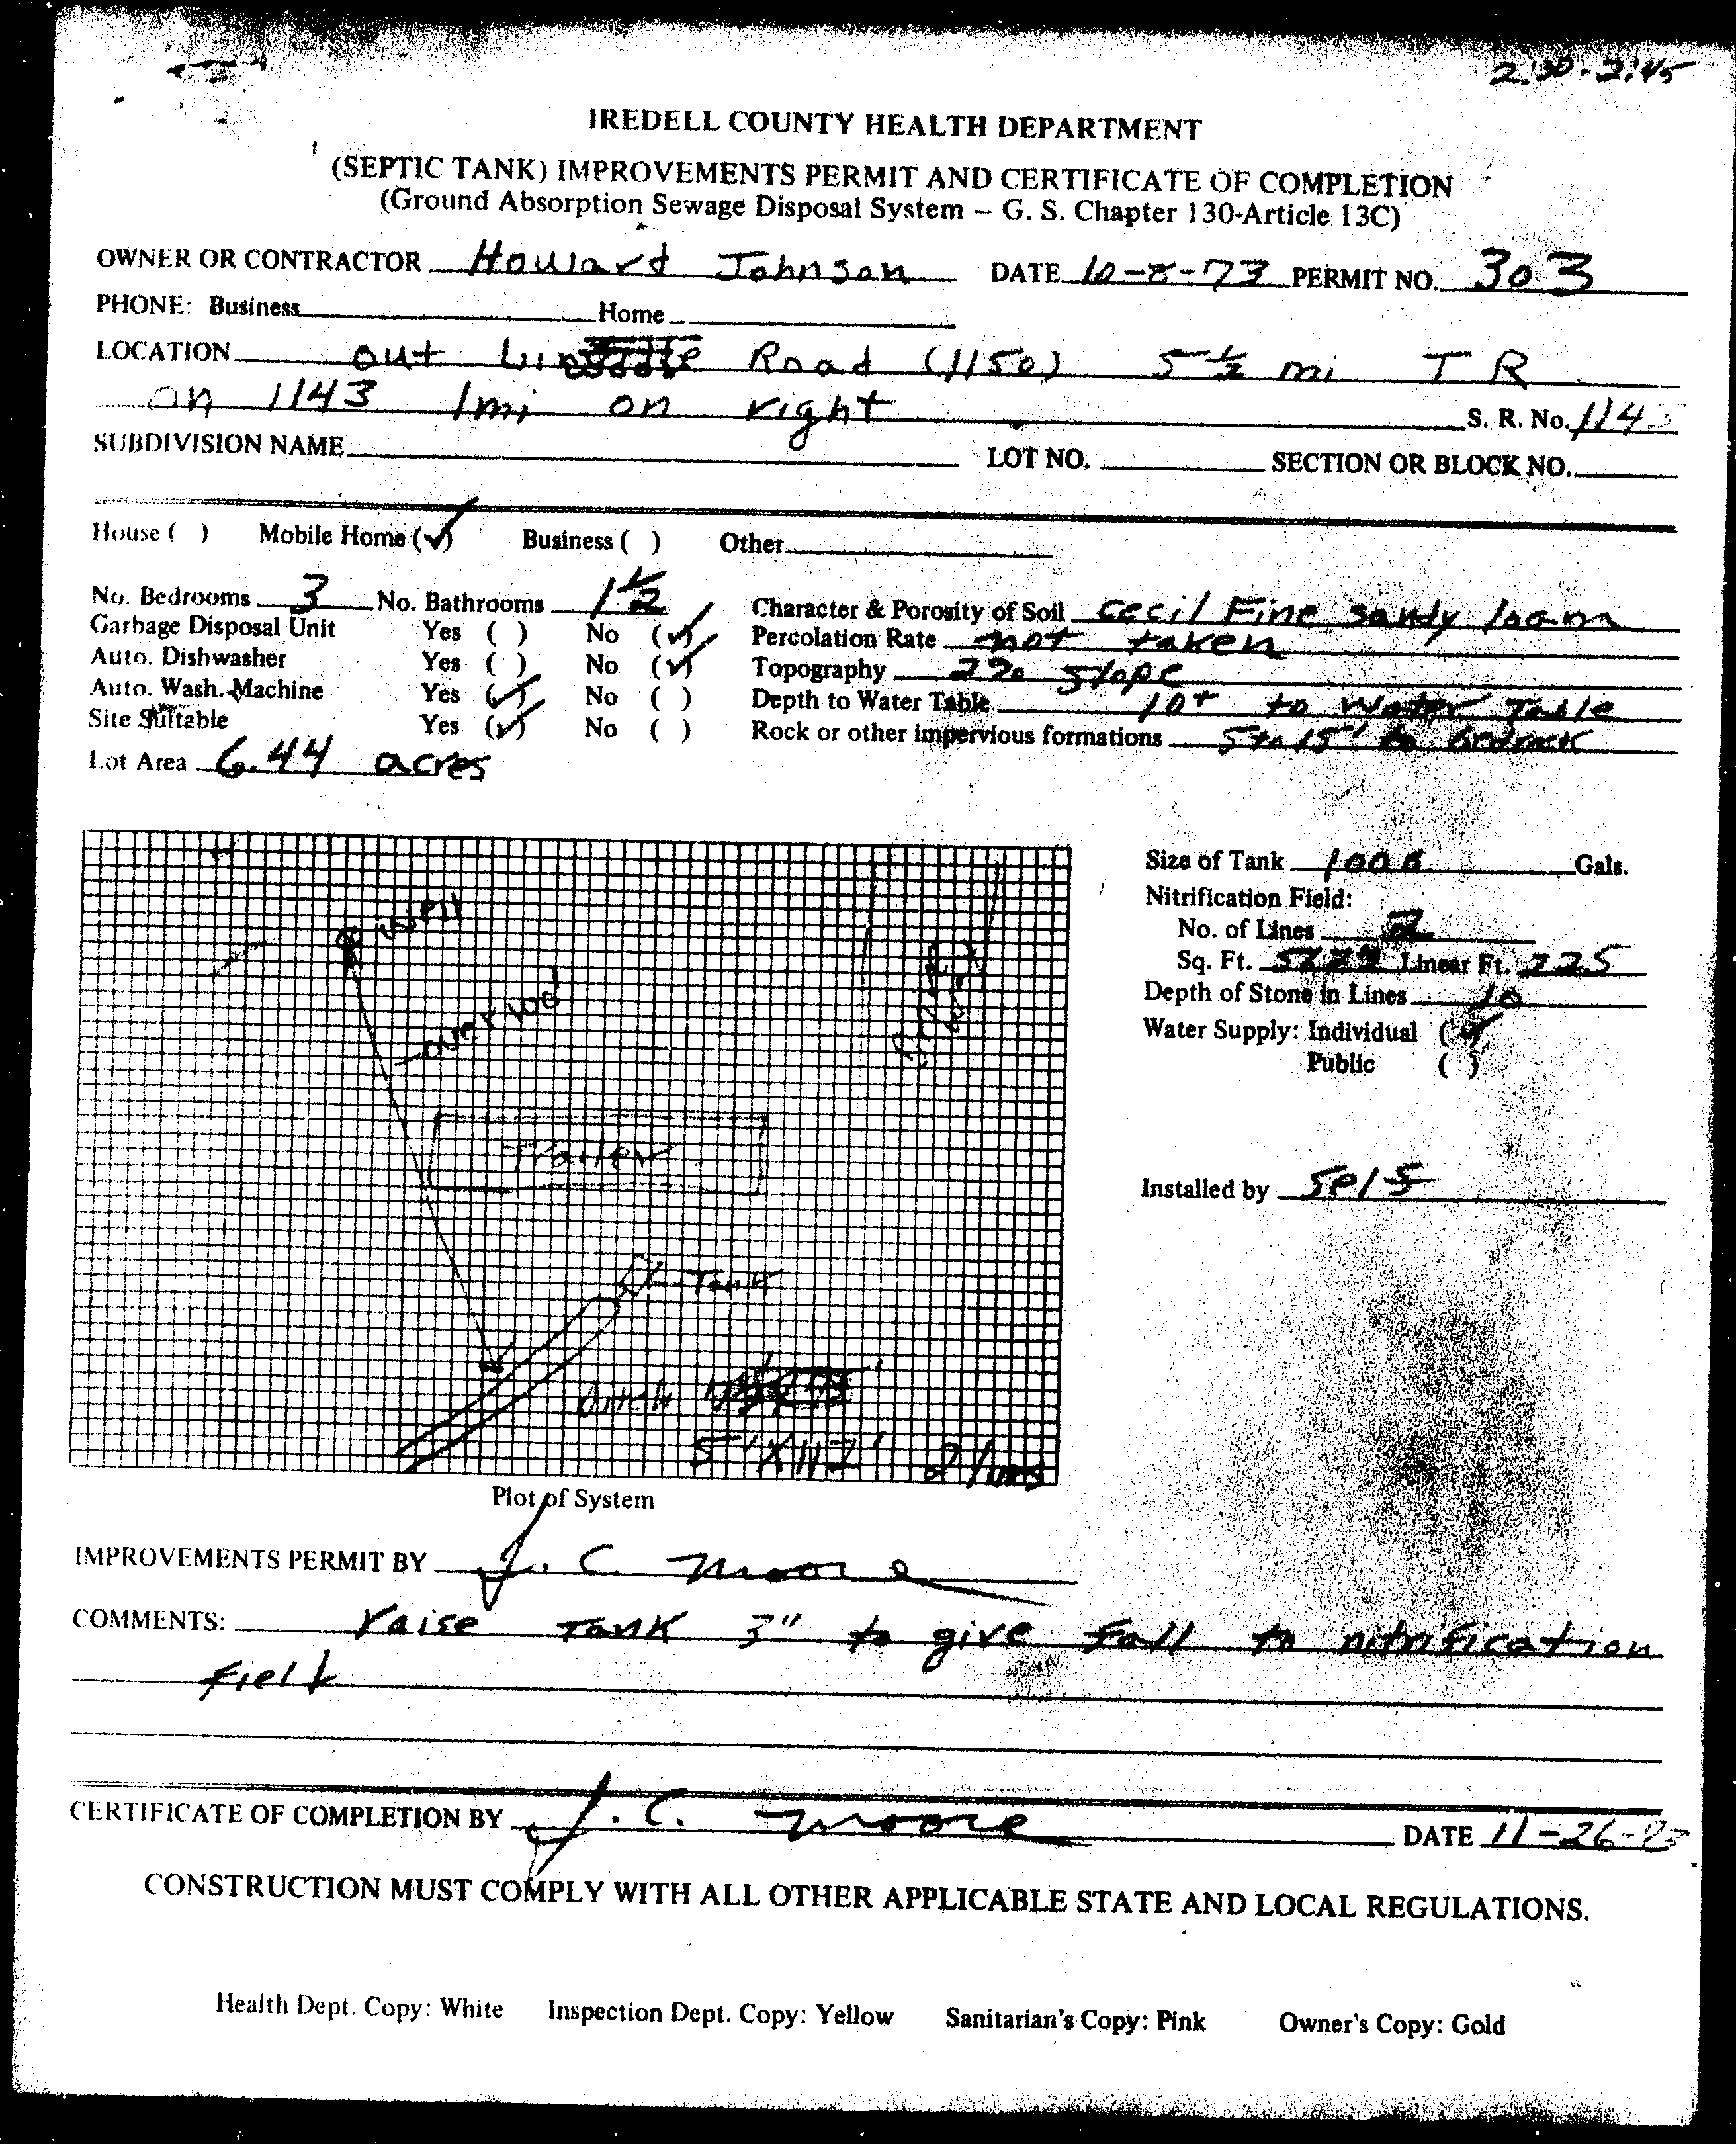 2:30-2:45
IREDELL COUNTY HEALTH DEPARTMENT
(SEPTIC TANK) IMPROVEMENTS PERMIT AND CERTIFICATE OF COMPLETION
(Ground Absorption Sewage Disposal System – G. S. Chapter 130-Article 13C)
OWNER OR CONTRACTOR Howard Johnson DATE 10-8-73 PERMIT NO. 303
PHONE: Business Home
LOCATION out Road (1150) 5 1/2 mi T R
on 1143 1mi on right S. R. No. 1143
SUBDIVISION NAME LOT NO. SECTION OR BLOCK NO.
House ( ) Mobile Home (✓) Business ( ) Other
No. Bedrooms 3 No. Bathrooms 1 1/2 Character & Porosity of Soil Cecil Fine sandy loam
Garbage Disposal Unit Yes ( ) No (✓) Percolation Rate not taken
Auto. Dishwasher Yes ( ) No (✓) Topography 2% slope
Auto. Wash. Machine Yes (✓) No ( ) Depth to Water Table 10+ to Water Table
Site Suitable Yes (✓) No ( ) Rock or other impervious formations 5 to 15' to bedrock
Lot Area 6.44 acres
Size of Tank 1000 Gals.
Nitrification Field:
No. of Lines 2
Sq. Ft. Linear Ft. 225
Depth of Stone in Lines 10
Water Supply: Individual (✓)
Public ( )
Installed by Self
Well
over 100'
Trailer
Tank
Ditch
5' X 112' 2 lines
Plot of System
IMPROVEMENTS PERMIT BY J. C. Moore
COMMENTS: raise Tank 3" to give fall to nitrification
field
CERTIFICATE OF COMPLETION BY J. C. Moore DATE 11-26-73
CONSTRUCTION MUST COMPLY WITH ALL OTHER APPLICABLE STATE AND LOCAL REGULATIONS.
Health Dept. Copy: White Inspection Dept. Copy: Yellow Sanitarian's Copy: Pink Owner's Copy: Gold